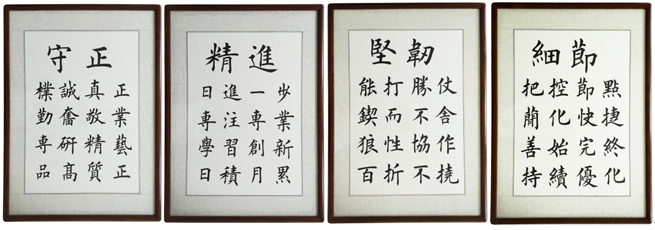 守正
樸誠真正
勤奮敬業
専研精藝
品高質正
精進
日進一步
専注専業
學習創新
日積月累
堅韌
能打勝仗
鍥而不舍
狼性協作
百折不撓
細節
把控節點
簡化快捷
善始完終
持續優化